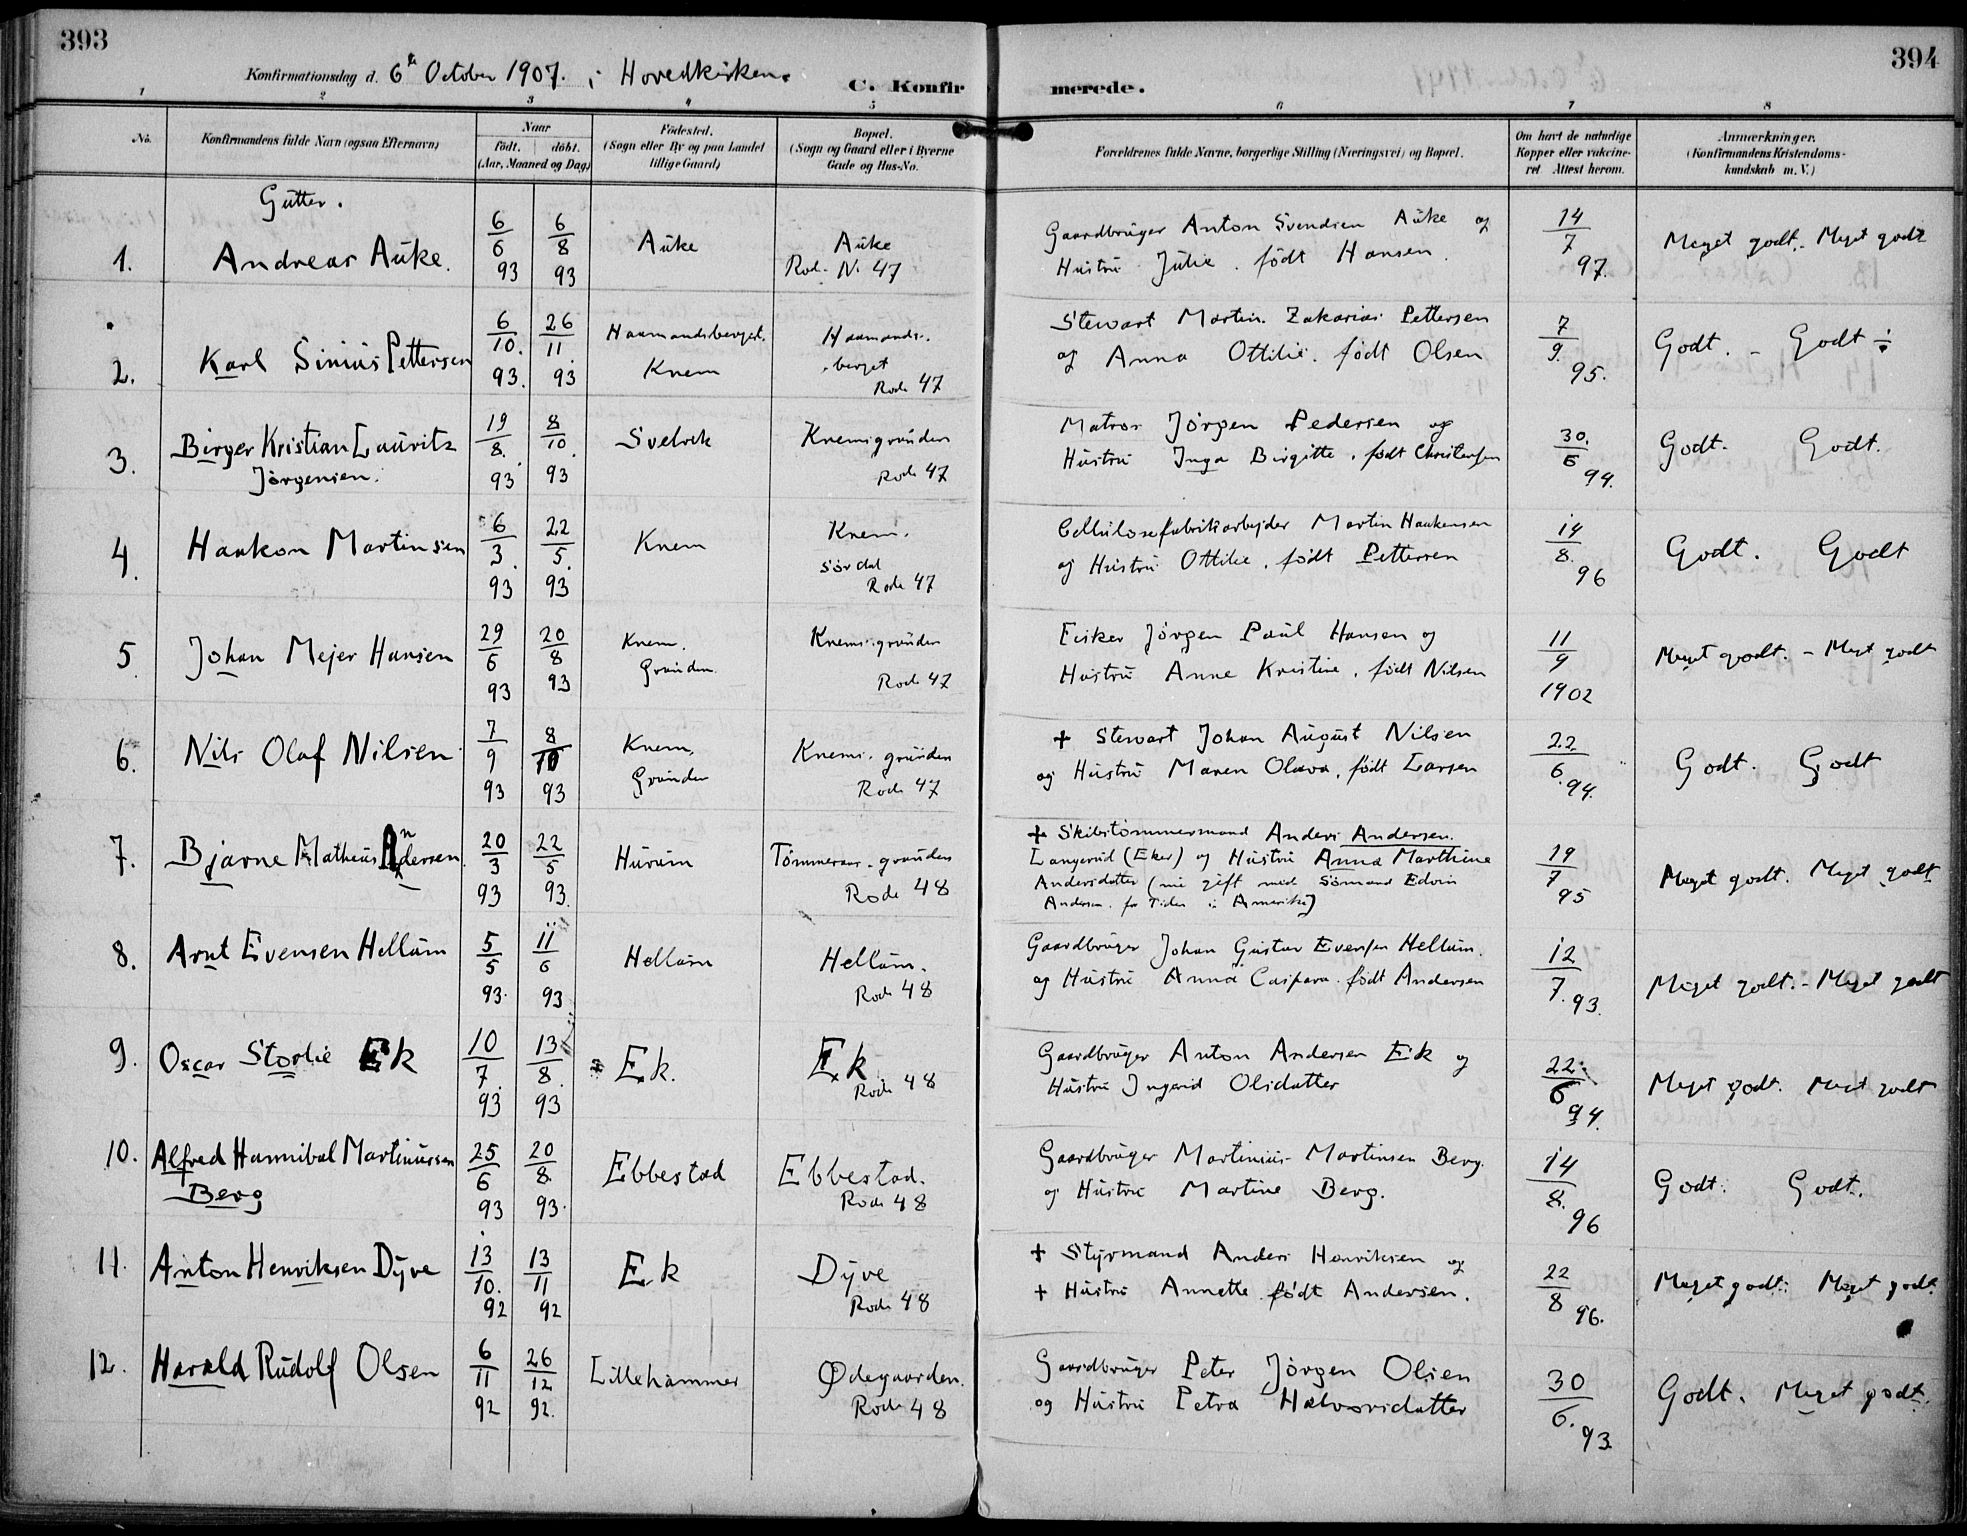 393
394
Konfirmationsdag d. 6te October 1907. i Hovedkirken.
C. Konfirmerede.
1 2 3 4 5 6 7 8
No. Konfirmandens fulde Navn (ogsaa Efternavn)
Naar
født. døbt.
(Aar, Maaned og Dag)
Fødested.
(Sogn eller By og paa Landet
tillige Gaard)
Bopæl.
(Sogn og Gaard eller i Byerne
Gade og Hus-No.
Forældrenes fulde Navne, borgerlige Stilling (Næringsvei) og Bopæl.
Om havt de naturlige
Kopper eller vakcine-
ret Attest herom.
Anmærkninger.
(Konfirmandens Kristendoms-
kundskab m. V.)
Gutter.
1. Andreas Auke.
6/6 93
6/8 93
Auke
Auke
Rode N. 47
Gaardbruger Anton Svendsen Auke og
Hustru Julie. født Hansen.
14/7 97.
Meget godt. - Meget godt
2. Karl Sinius Pettersen
6/10. 93.
26/11. 93
Haamandsberget.
Knem
Haamands-
berget
Rode 47
Stewart Martin Zakarias Pettersen
og Anna Ottilie. født Olsen
7/9. 95.
Godt. - Godt ÷
3. Birger Kristian Lauritz
Jørgensen.
19/8. 93
8/10. 93
Svelvik
Knemsgrunden
Rode 47
Matros Jørgen Pedersen og
Hustru Inga Birgitte. født Christensen
30./6 94.
Godt. Godt.
4. Haakon Martinsen
6/3. 93
22/5. 93
Knem
Knem.
Sørdal
Rode 47
Cellulosefabrikarbejder Martin Haakensen
og Hustru Ottilie. født Pettersen
14/8. 96
Godt. Godt
5 Johan Mejer Hansen
29/6 93
20/8 93
Knem.
Grunden
Knems.grunden
Rode 47
Fisker Jørgen Paul Hansen og
Hustru Anne Kristine. født Nilsen
11/9 1902
Meget godt. - Meget godt
6. Nils Olaf Nilsen
7/9 93
8/10 93
Knem.
Grunden
Knems. grunden
Rode 47
+ Stewart Johan August Nilsen
og Hustru Maren Olava. født Larsen
22/6. 94.
Godt. Godt
7. Bjarne Matheus Andersen
20/3 93
22/5 93.
Hurum
Tømmeraas-grunden
Rode 48
+ Skibstømmermand Anders Andersen
Langerud (Eker) og Hustru Anna Marthine
Andersdatter (nu gift med Sømand Edvin
Andersen. for Tiden i Amerika)
19/7 95
Meget godt. Meget godt
8. Arnt Evensen Hellum
5/5 93.
11/6 93
Hellum
Hellum.
Rode 48
Gaardbruger Johan Gustav Evensen Hellum.
og Hustru Anna Caspara. født Andersen
12/7. 93.
Meget godt. - Meget godt
9. Oscar Storlie Ek
10/7. 93
13/8. 93
Ek.
Ek
Rode 48
Gaardbruger Anton Andersen Ek og
Hustru Ingerid Olsdatter
22/6 94.
Meget godt. Meget godt
10. Alfred Hannibal Martinussen
Berg
25/6 93
20/8. 93.
Ebbestad
Ebbestad.
Rode 48
Gaardbruger Martinius Martinsen Berg.
og Hustru Martine Berg.
14/8. 96
Godt. Godt.
11. Anton Henriksen Dyve
13/10. 92
13/11 92
Ek
Dyve
Rode 48
+ Styrmand Anders Henriksen og
+ Hustru Annette. født Andersen.
22/8 96.
Meget godt. Meget godt
12. Harald Rudolf Olsen
6/11 92
26/12 92.
Lillehammer
Ødegaarden.
Rode 48
Gaardbruger Peter Jørgen Olsen
og Hustru Petra Halvorsdatter
30/6. 93
Godt. Meget godt.